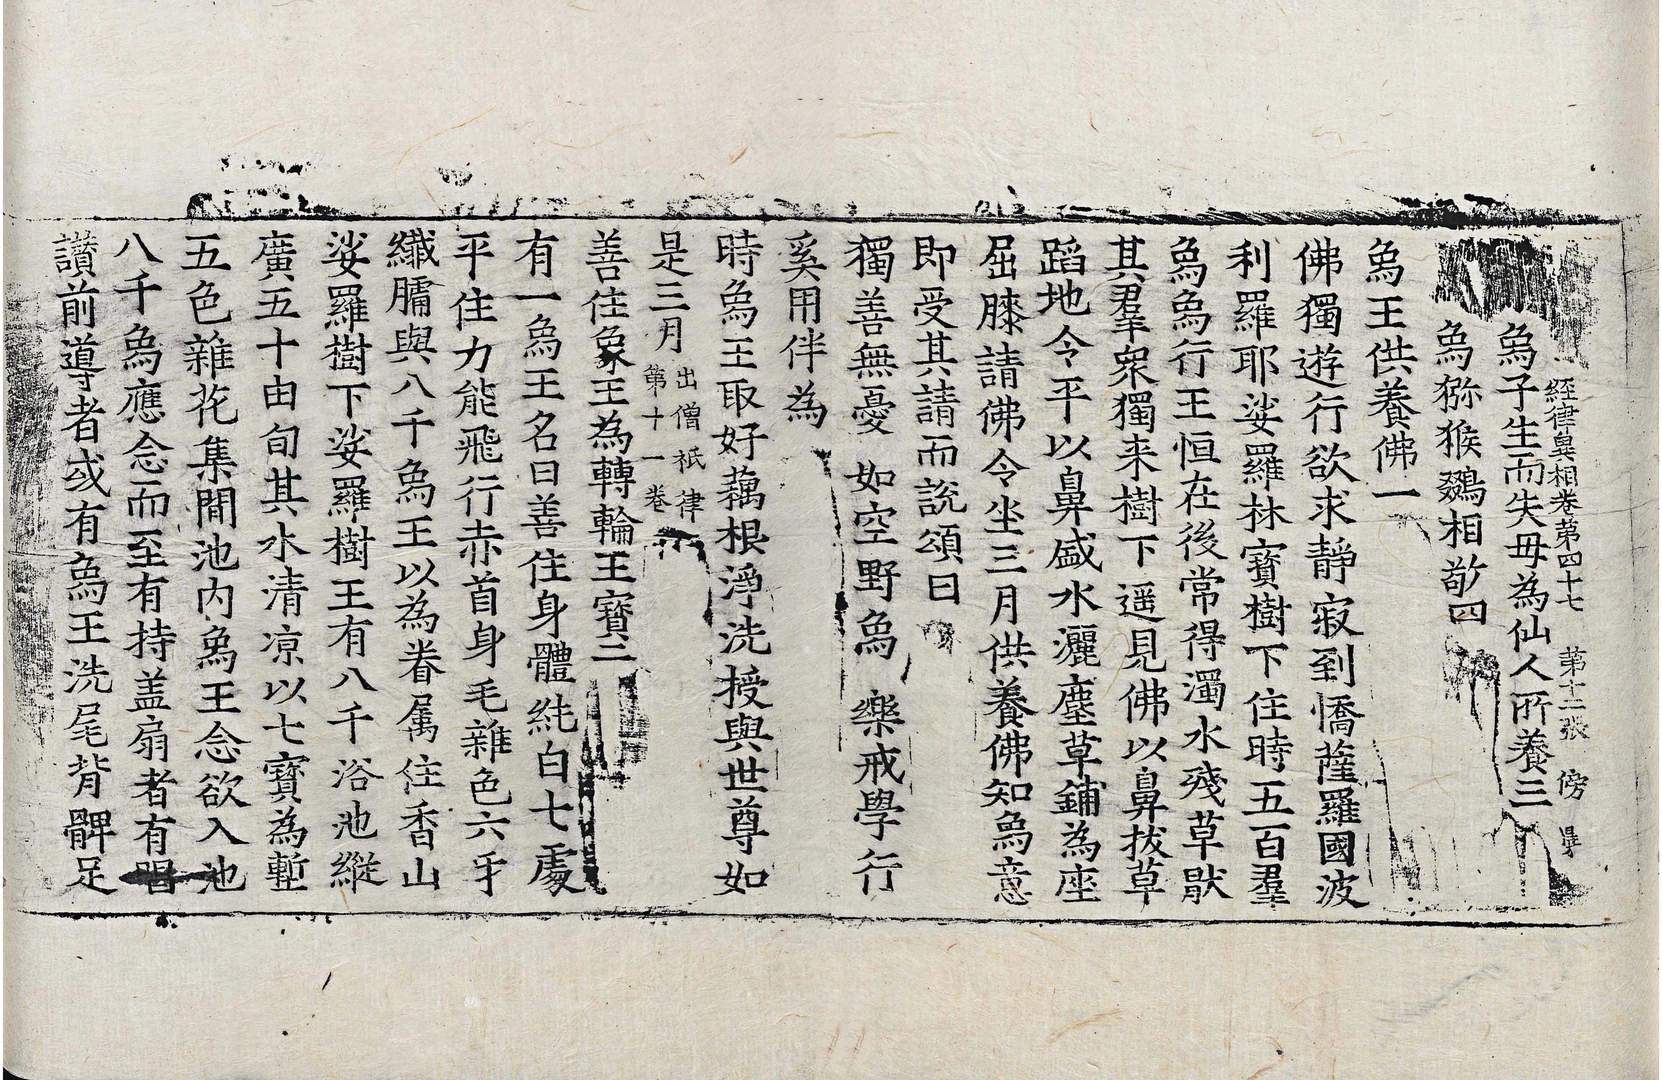 經律異相卷第四十七 第十二張 傍
象子生而失母為仙人所養三
象獼猴鵽相敬四
象王供養佛一
佛獨遊行欲求靜寂到憍薩羅國波
利羅耶娑羅林寶樹下住時五百羣
象象行王恒在後常得濁水殘草猒
其羣眾獨来樹下遥見佛以鼻拔草
蹈地令平以鼻盛水灑塵草鋪為座
屈膝請佛令坐三月供養佛知象意
即受其請而說頌曰
獨善無憂 如空野象 樂戒學行
奚用伴為
時象王取好藕根淨洗授與世尊如
是三月出僧祇律第十一卷
善住象王為轉輪王寶二
有一象王名曰善住身體純白七處
平住力能飛行赤首身毛雜色六牙
纖𦟛與八千象王以為眷属住香山
娑羅樹下娑羅樹王有八千浴池縱
廣五十由旬其水清凉以七寶為壍
五色雜花集間池内象王念欲入池
八千象應念而至有持盖扇者有唱
讚前導者或有象王洗尾背髀足